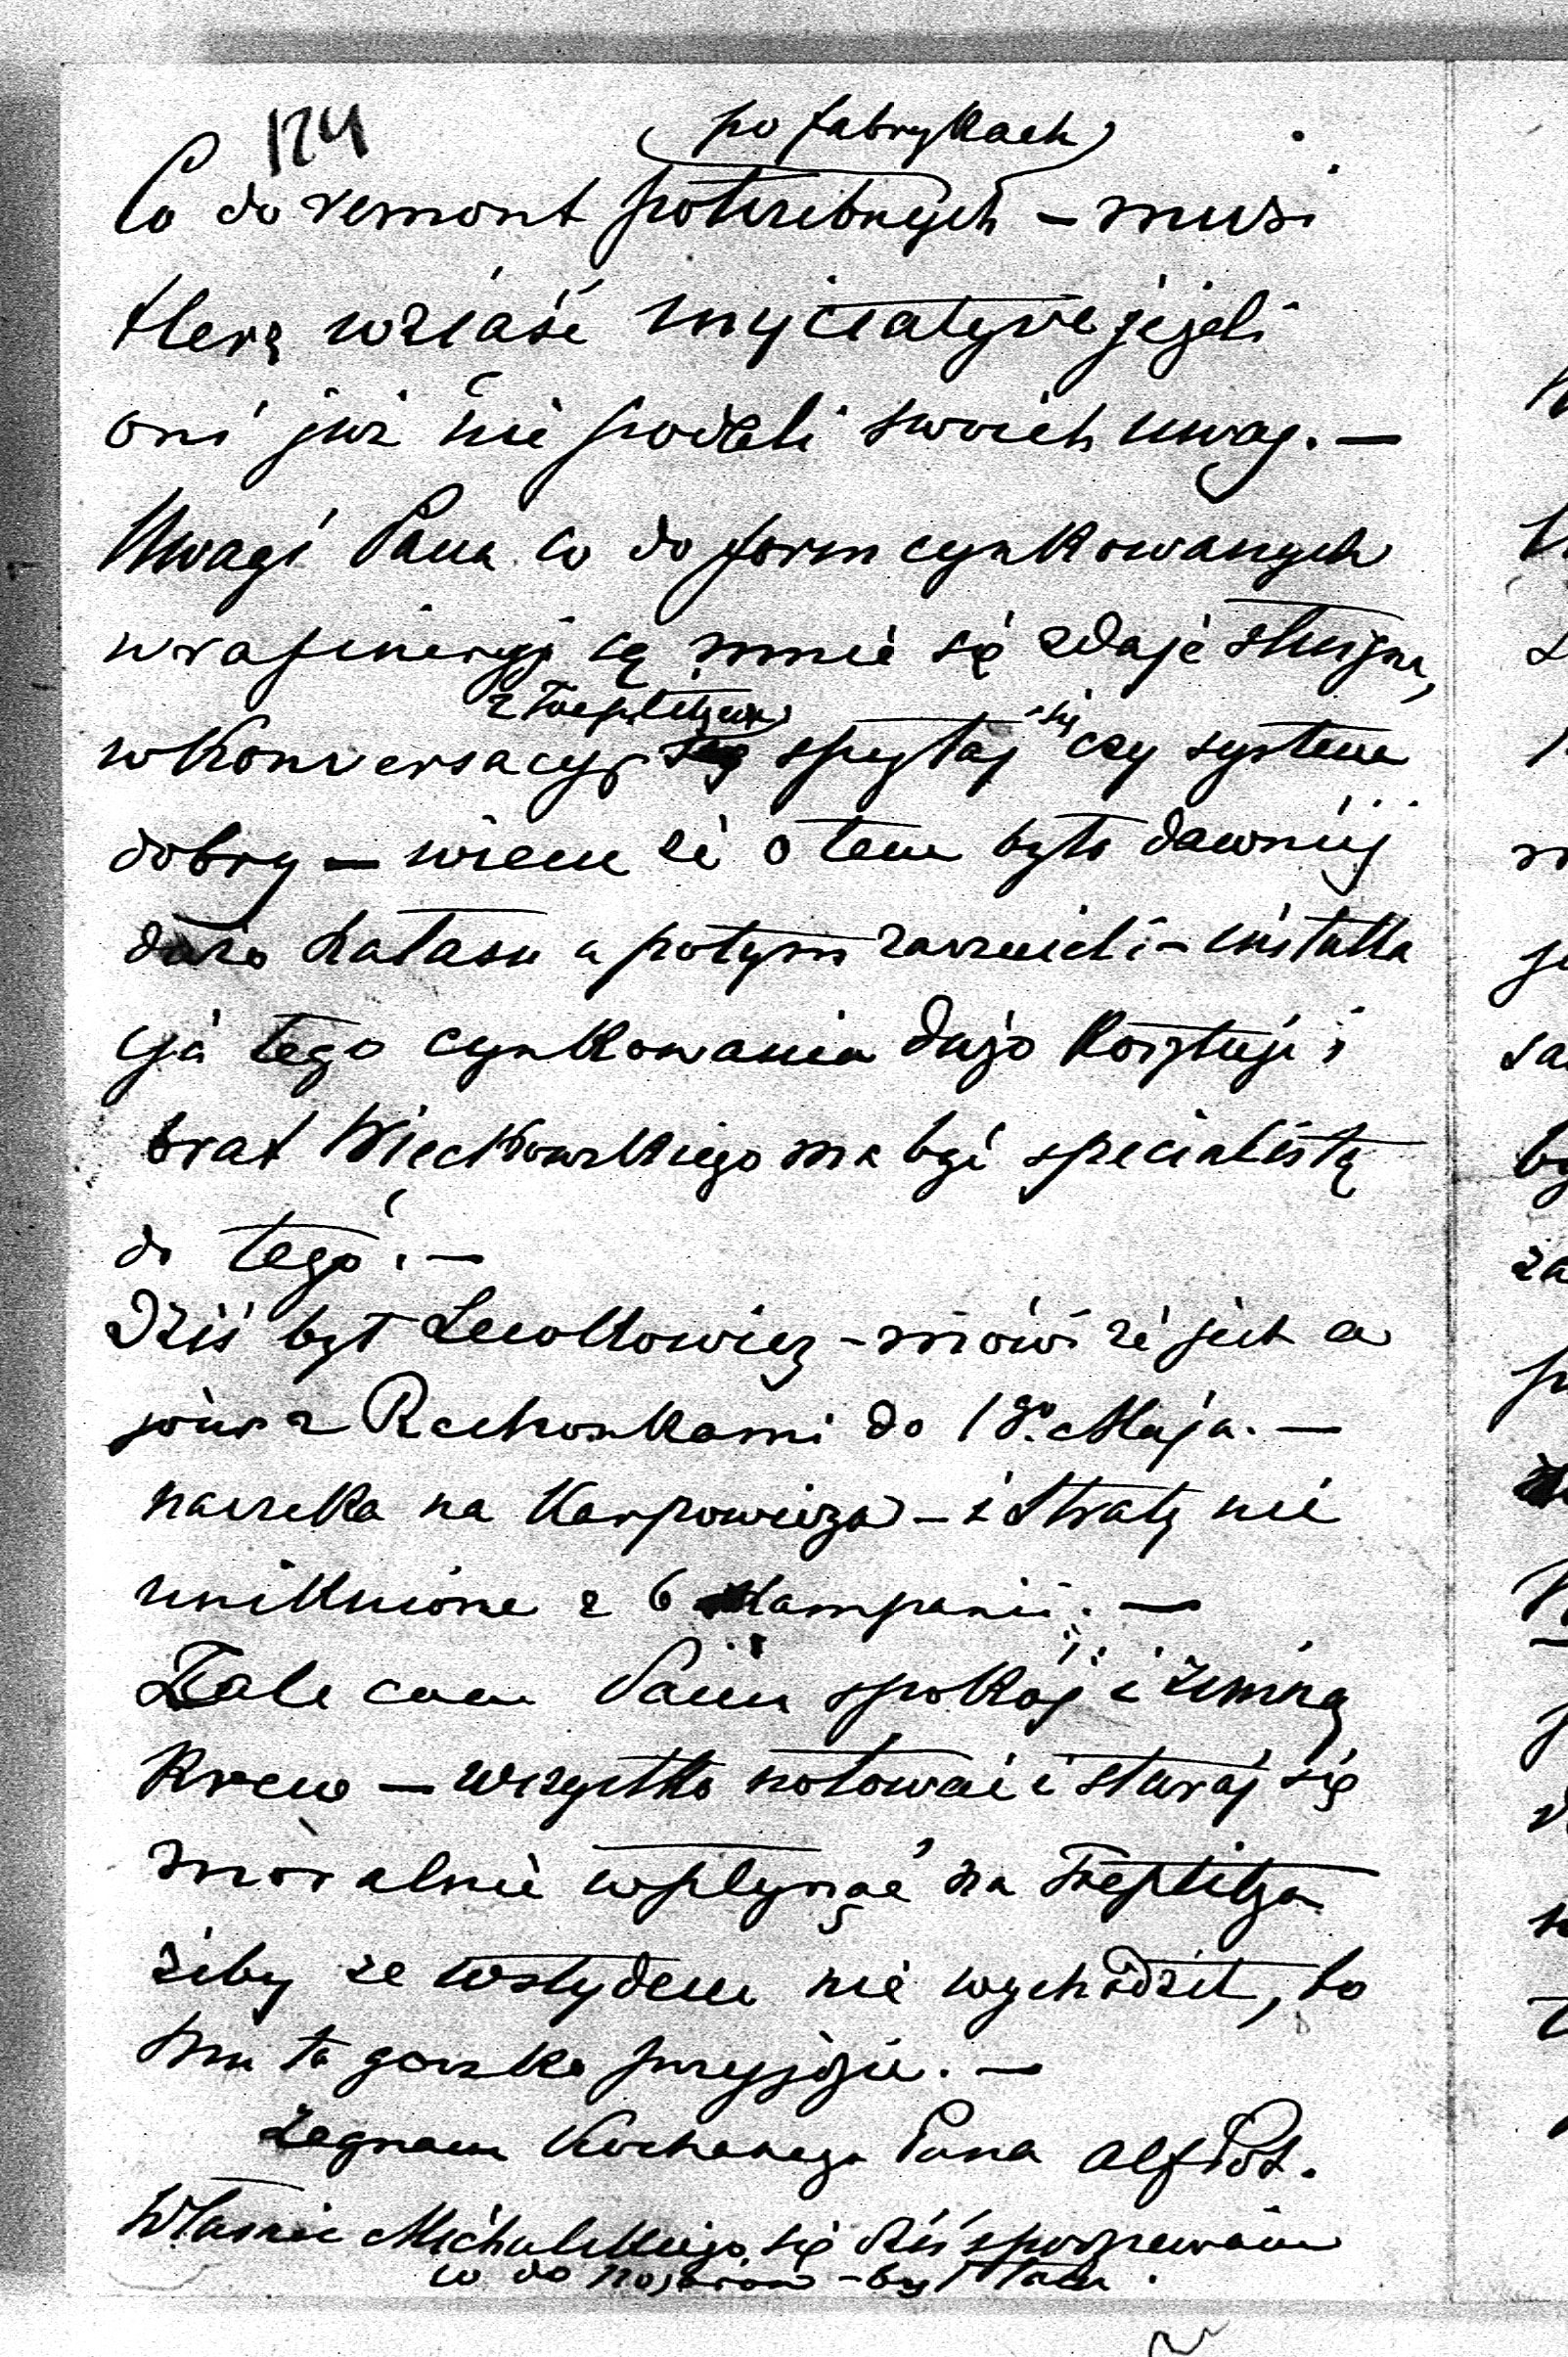 124
po fabrykach
Co do remont potrzebnych – musi
wziąść inyciatywę jeżeli
oni już nie podali swoich uwag. –
Uwagi Pana co do form cynkowanych
w rafineryj są mnie się zdaje słuszne,
z Toeplitzem się
w konversacyj spytaj czy system
dobry – wiem że o tem było dawniej
dużo hałasu a potym zarzucili – installa
cja tego cynkowania dużo kosztuje i
brat Więckowskiego ma być specialistą
do tego. –
Dziś był – mówi że jest a
jour z Rachunkami do 1go. Maja. –
narzeka na Karpowicza – i stratę nie
uniknione z 6 Kampanii. –
Zalecam Panu spokój i zimną
Krew – wszystko notować i staraj się
moralnie wpłynąć na Toeplitza
żeby ze wstydem nie wychodził, bo
mu to gorzko przyjdzie. –
Żegnam Kochanego Pana Alf Pot.
Właśnie Michalskiego się dziś spodziewam
co do – był tam.